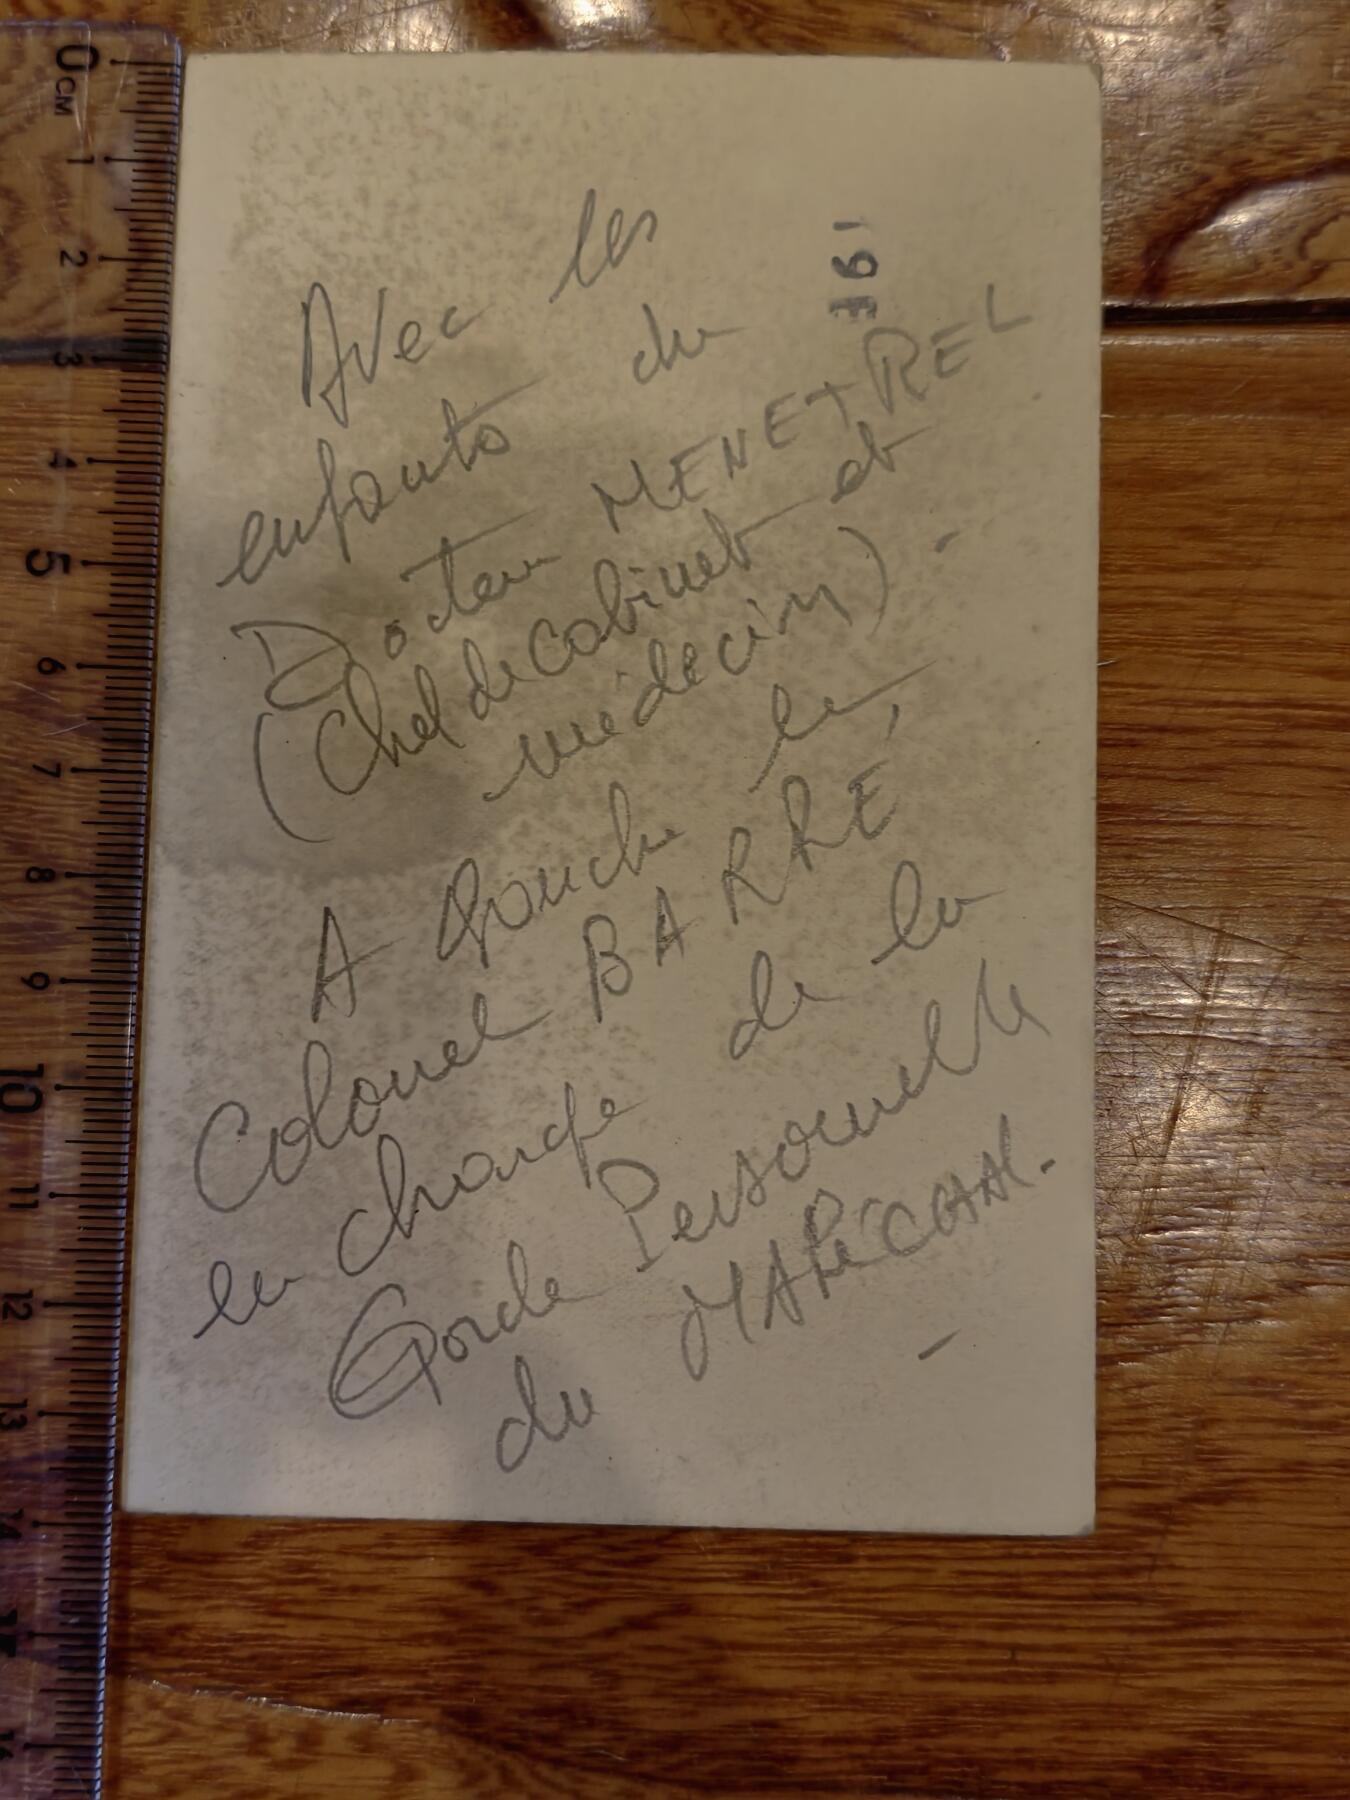 Avec les
enfants du
Docteur MENETREL
(Chef de cabinet et
médecin) -
A Gauche le
Colonel BARRÉ,
en charge de la
Garde Personnelle
du MARÉCHAL.
-
0 CM
1
2
3
4
5
6
7
8
9
10
11
12
13
14